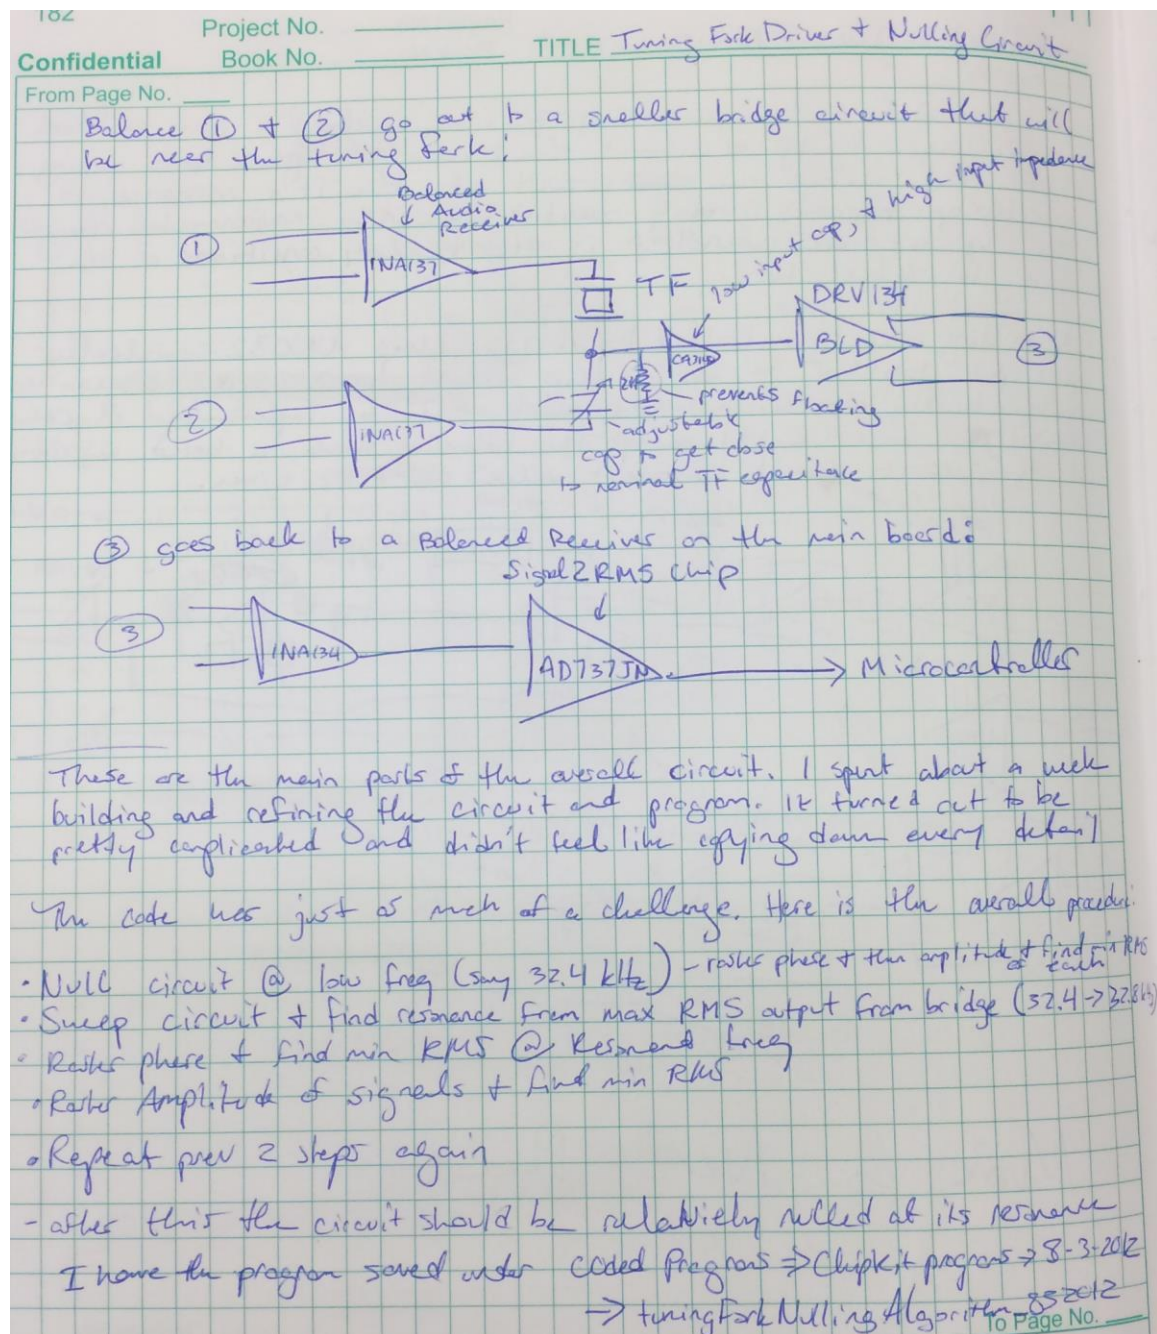 182
Project No.
Confidential
Book No.
TITLE Tuning Fork Driver + Nulling Circuit
From Page No.
Balance ① + ② go out to a smaller bridge circuit that will
be near the tuning fork:
Balanced
Audio
Receiver
low input cap, + high input impedence
①
INA137
TF
DRV134
CA3140
BLD
③
②
INA137
prevents floating
adjustable
cap to get close
to nominal TF capacitance
③ goes back to a Balanced Receiver on the main board:
Signal2RMS Chip
③
INA134
AD737JN
Microcontroller
These are the main parts of the overall circuit. I spent about a week
building and refining the circuit and program. It turned out to be
pretty complicated and didn't feel like copying down every detail
The code was just as much of a challenge. Here is the overall procedure.
• Null circuit @ low freq (say 32.4 kHz) - raster phase + then amplitude + find min RMS
of each
• Sweep circuit + find resonance from max RMS output from bridge (32.4 → 32.8 kHz)
• Raster phase + find min RMS @ Resonant freq
• Raster Amplitude of signals + find min RMS
• Repeat prev 2 steps again
- after this the circuit should be relatively nulled at its resonance
I have the program saved under coded Programs ⇒ Chipkit programs → 8-3-2012
→ tuningForkNullingAlgorithm_852012
To Page No.